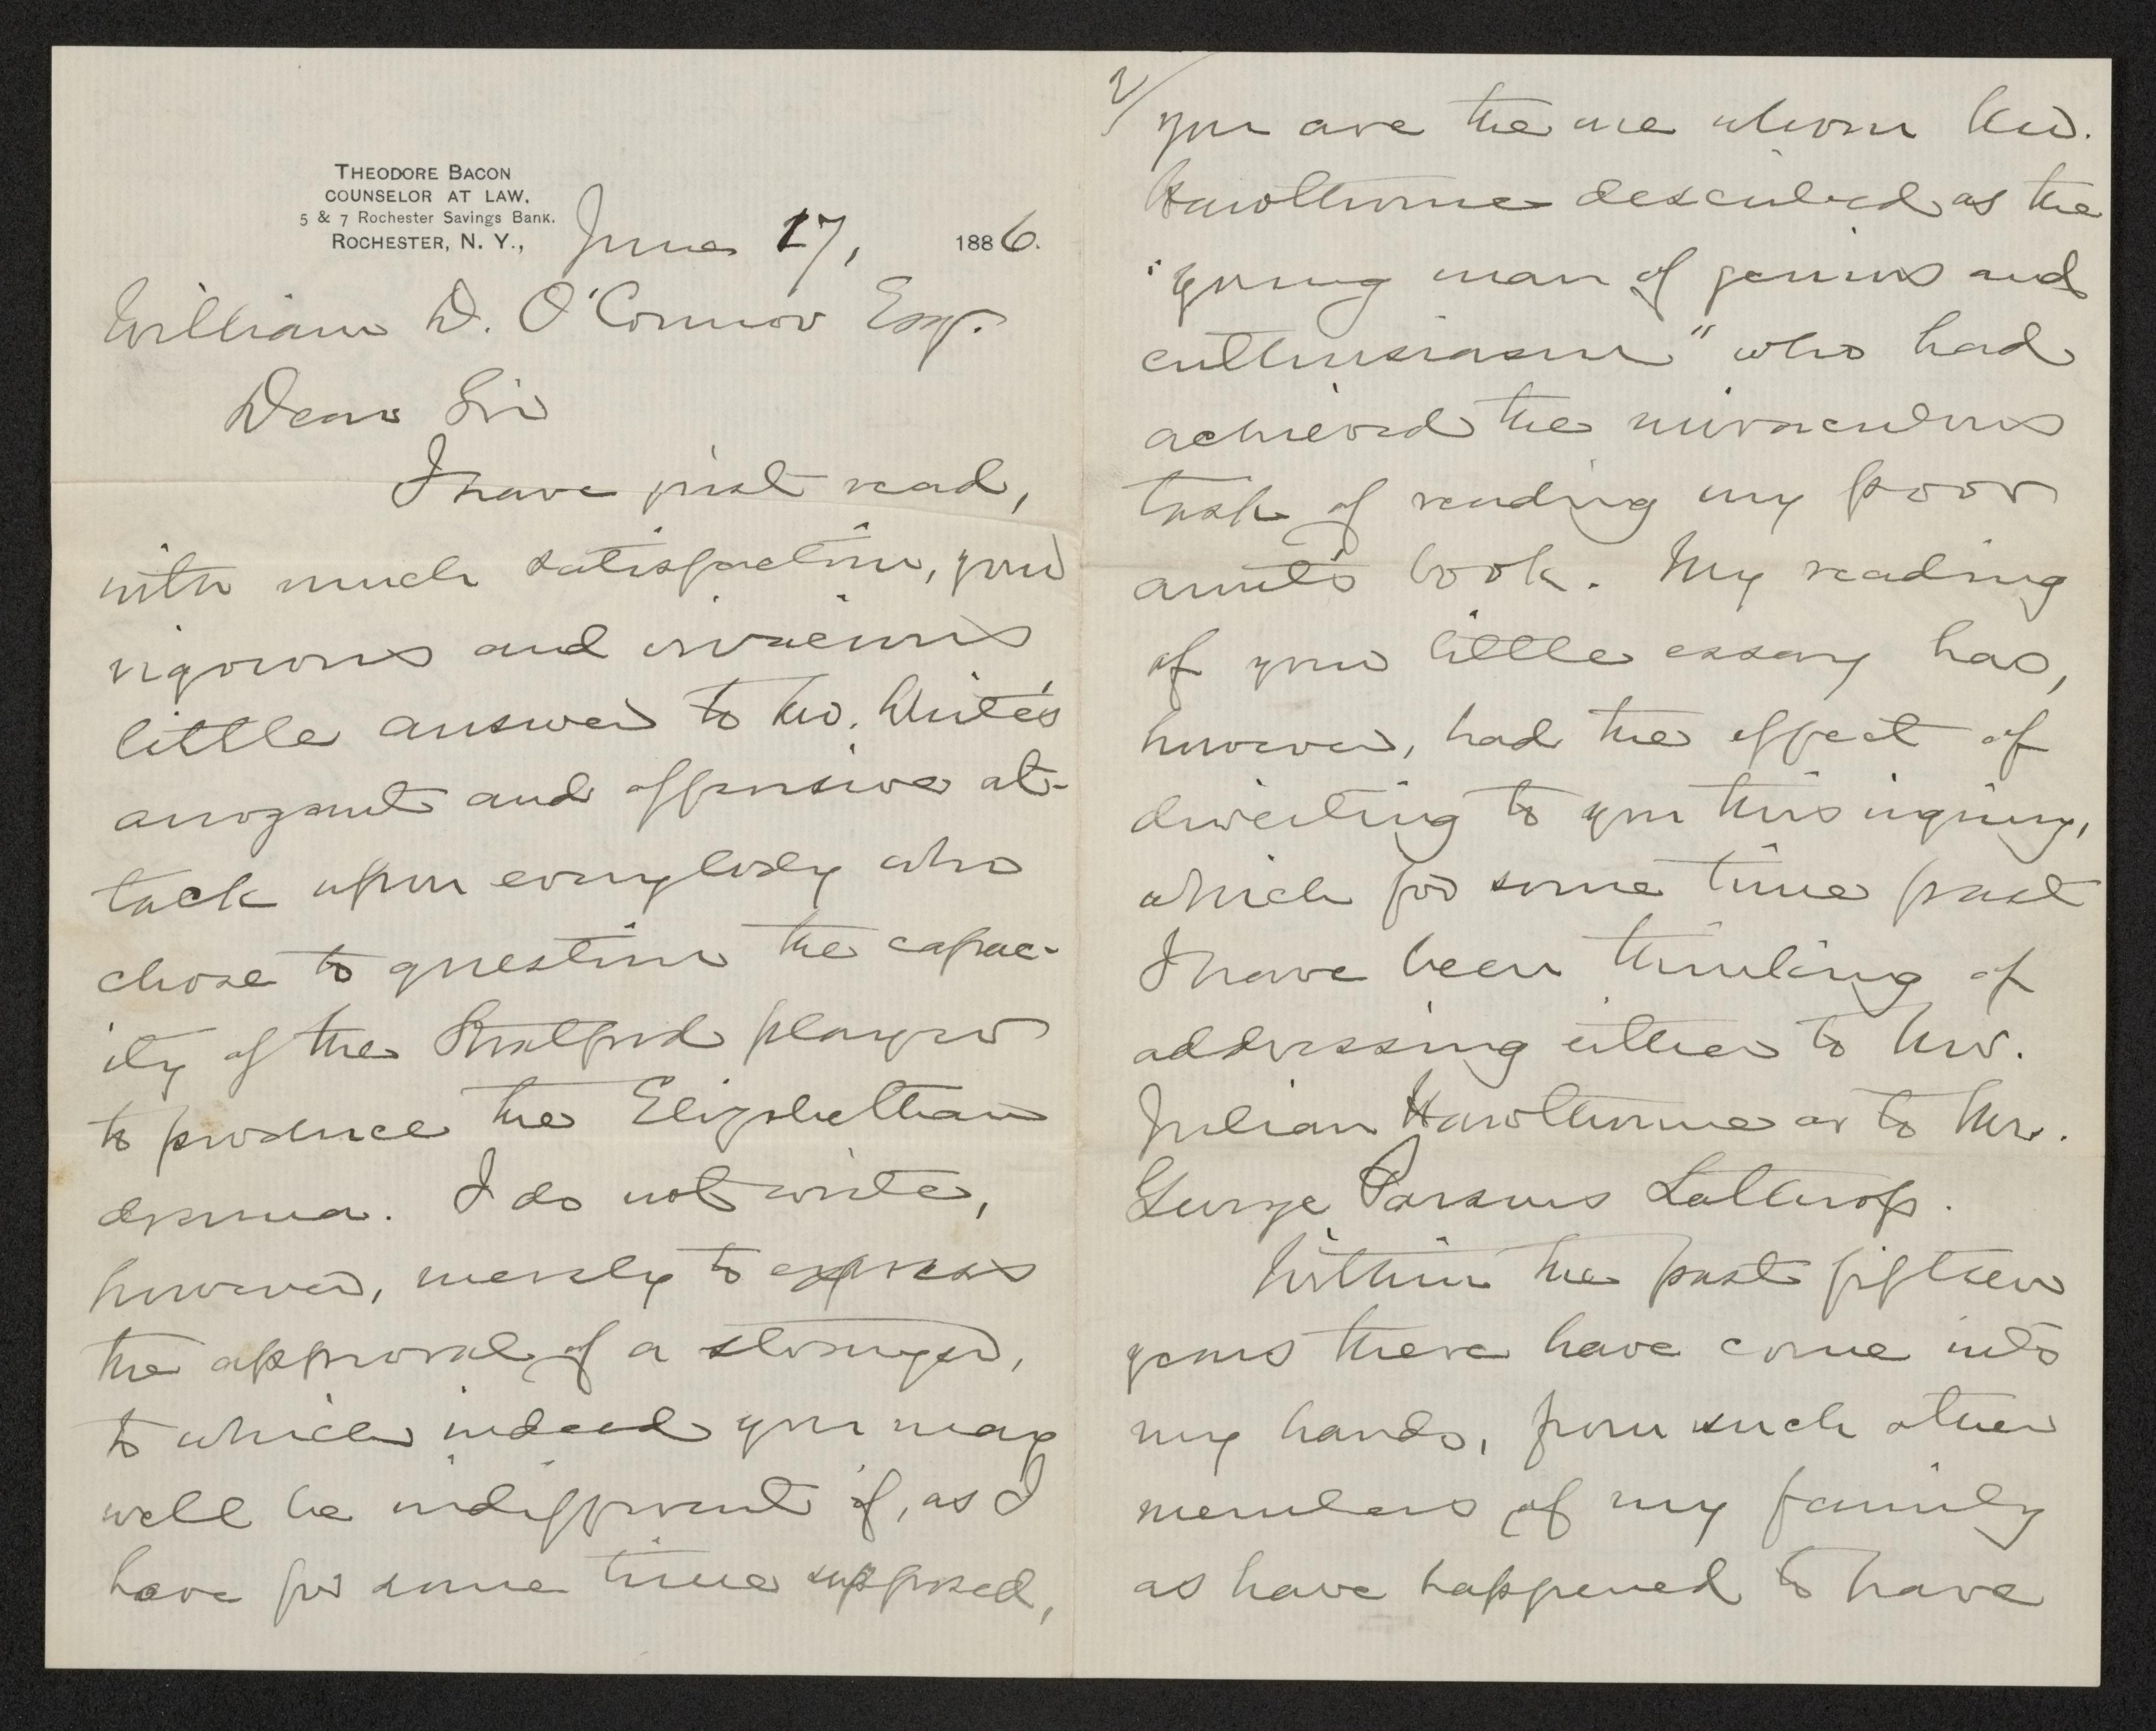 THEODORE BACON
COUNSELOR AT LAW,
5 & 7 Rochester Savings Bank.
ROCHESTER, N. Y., June 17, 1886.
William D. O'Connor Esq.
Dear Sir
I have just read,
with much satisfaction, your
vigorous and vivacious
little answer to Mr. White's
arrogant and offensive at-
tack upon everybody who
chose to question the capac-
ity of the Stratford player
to produce the Elizabethan
drama. I do not write,
however, merely to express
the approval of a stranger,
to which indeed you may
well be indifferent if, as I
have for some time supposed,
2/
you are the one whom Mr.
Hawthorne described as the
"young man of genius and
enthusiasm" who had
achieved the miraculous
task of reading my poor
aunt's book. My reading
of your little essay has,
however, had the effect of
diverting to you this inquiry,
which for some time past
I have been thinking of
addressing either to Mr.
Julian Hawthorne or to Mr.
George Parsons Lathrop.
Within the past fifteen
years there have come into
my hands, from such other
members of my family
as have happened to have